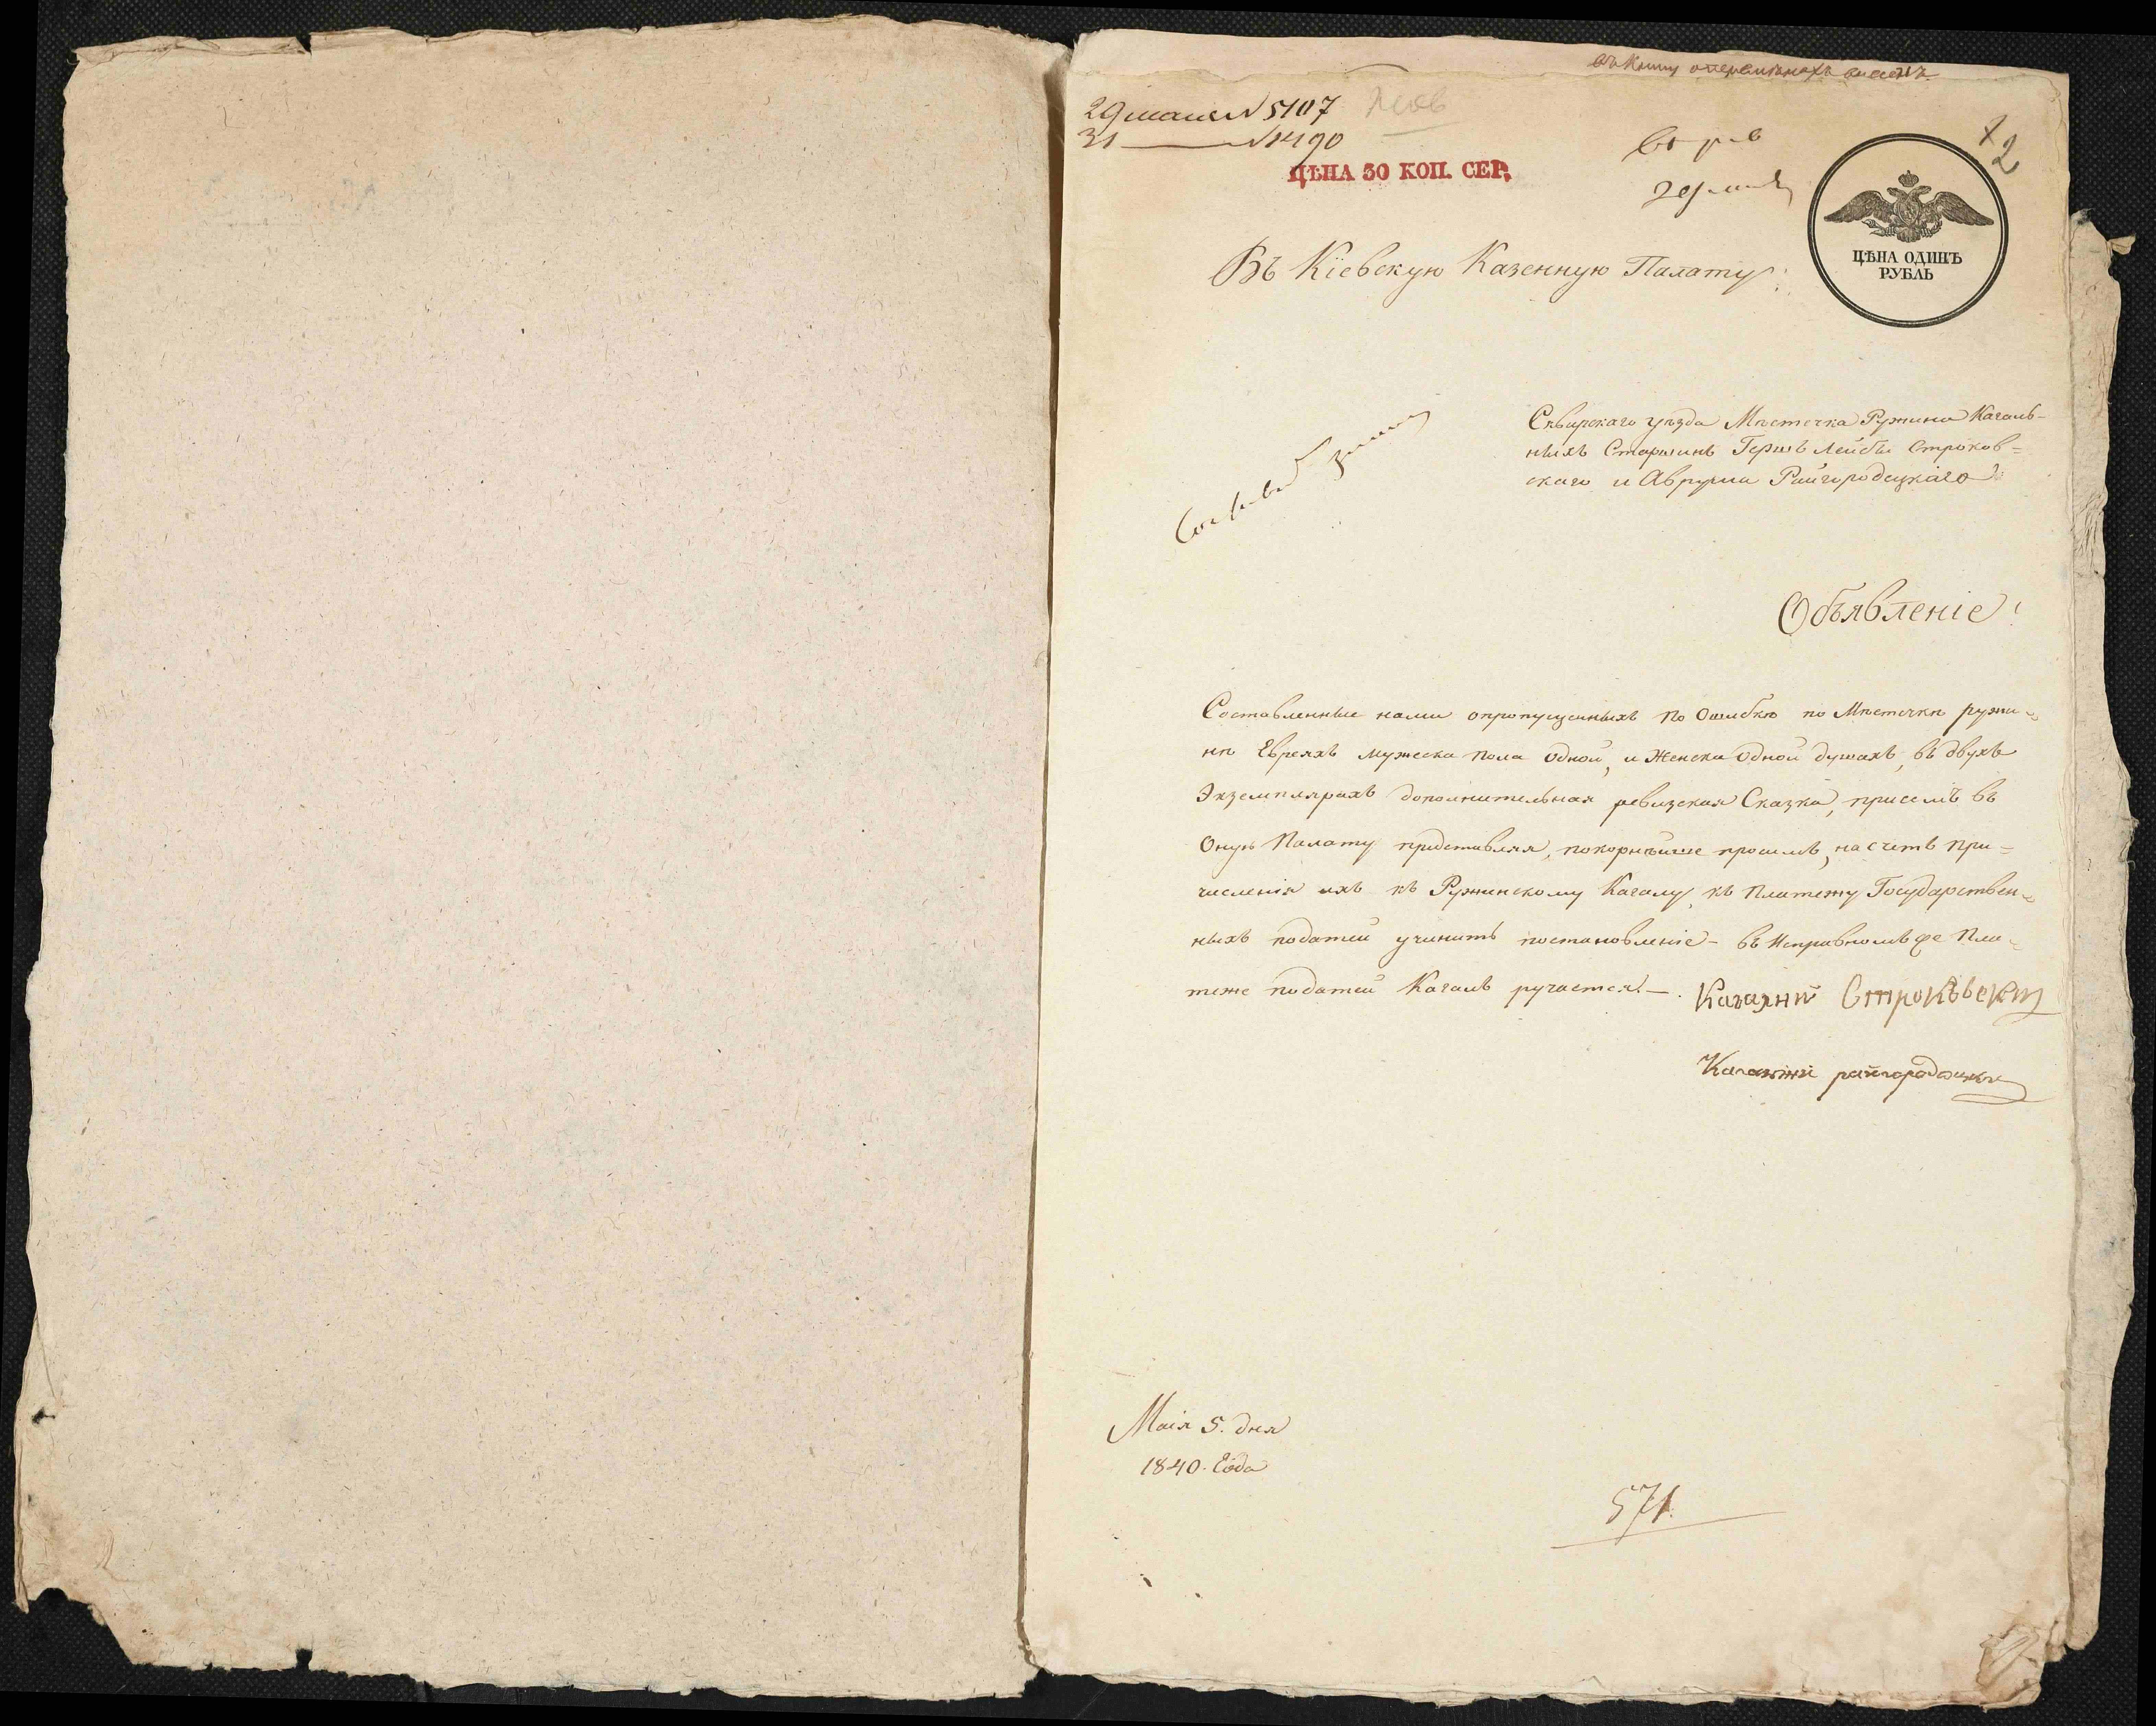 29 мая № 5107
31 № 1490
ЦѢНА 30 КОП. СЕР.
2
ЦѢНА ОДИНЪ
РУБЛЬ
Въ Кіевскую Казенную Палату:
Сквирскаго уѣзда Мѣстечка Ружина Кагаль-
ныхъ Старшинъ Гершъ Лейбы Строков-
скаго и Аврума Райгородецкаго
Объявленіе!
Составленные нами опропущенныхъ по Ошибкѣ по Мѣстечкѣ ружи-
нѣ Евреяхъ мужеска пола одной, и Женска одной душахъ, въ двухъ
Экземплярахъ дополнительная ревизская Сказка, присемъ въ
Оную Палату представляя, покорнѣйше просимъ, на счетъ При-
численія ихъ къ Ружинскому Кагалу, къ Платежу Государствен-
ныхъ податей учинить постановленіе - въ Исправномъ же Пла-
теже податей Кагалъ ручается. -
Кагалний Строкѣвски
Кагалний райгородецки
Маія 5. дня
1840. Года
571.